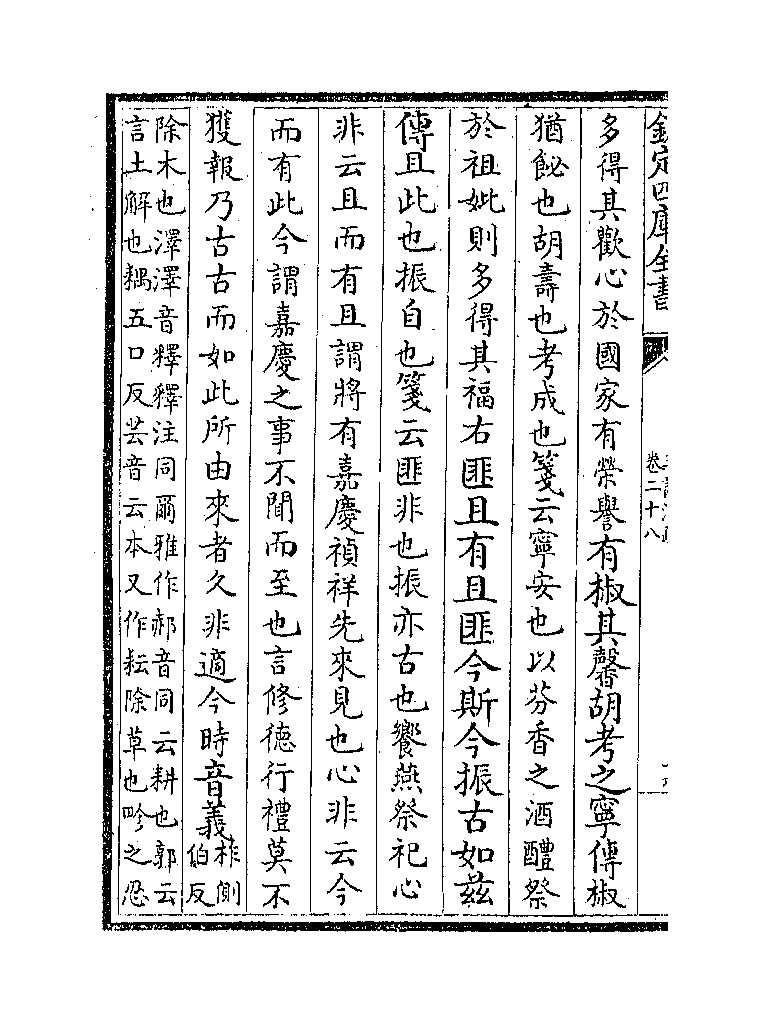 欽定四庫全書
卷二十八
多得其歡心於國家有榮譽有椒其馨胡考之寧傳椒
猶飶也胡壽也考成也箋云寧安也以芬香之酒醴祭
於祖妣則多得其福右匪且有且匪今斯今振古如兹
傳且此也振自也箋云匪非也振亦古也饗燕祭祀心
非云且而有且謂將有嘉慶禎祥先來見也心非云今
而有此今謂嘉慶之事不聞而至也言修徳行禮莫不
獲報乃古古而如此所由來者久非適今時音義柞側
伯反
除木也澤澤音釋釋注同爾雅作郝音同云耕也郭云
言土解也耦五口反芸音云本又作耘除草也畛之忍